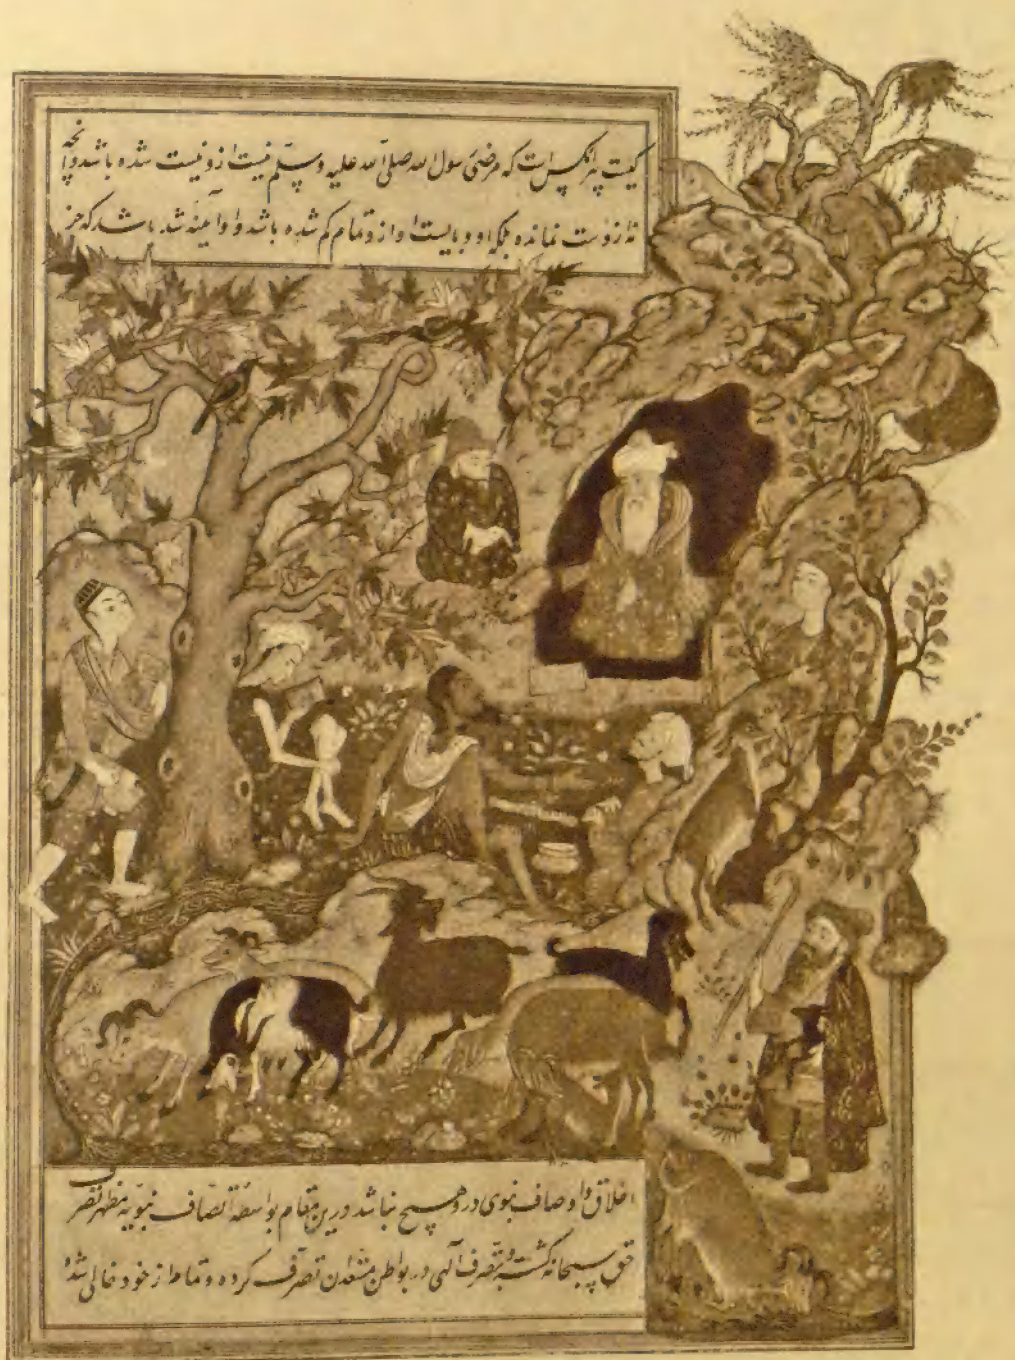 کیست پیر آنکس است که مرضی رسول الله صلی الله علیه وسلم نیست ازو نیست شده باشد وآنچه
نه ازوست نمانده بلکه او و بایست او ازو تمام کم شده باشد و او آینهٔ شده باشد که جز
اخلاق و اوصاف نبوی درو هیچ نباشد درین مقام بواسطهٔ اتصاف نبویه مظهر تصرف
حق سبحانه گشته و بتصرف آلهی در بواطن مستعدان تصرف کرده و تمام از خود خالی شده